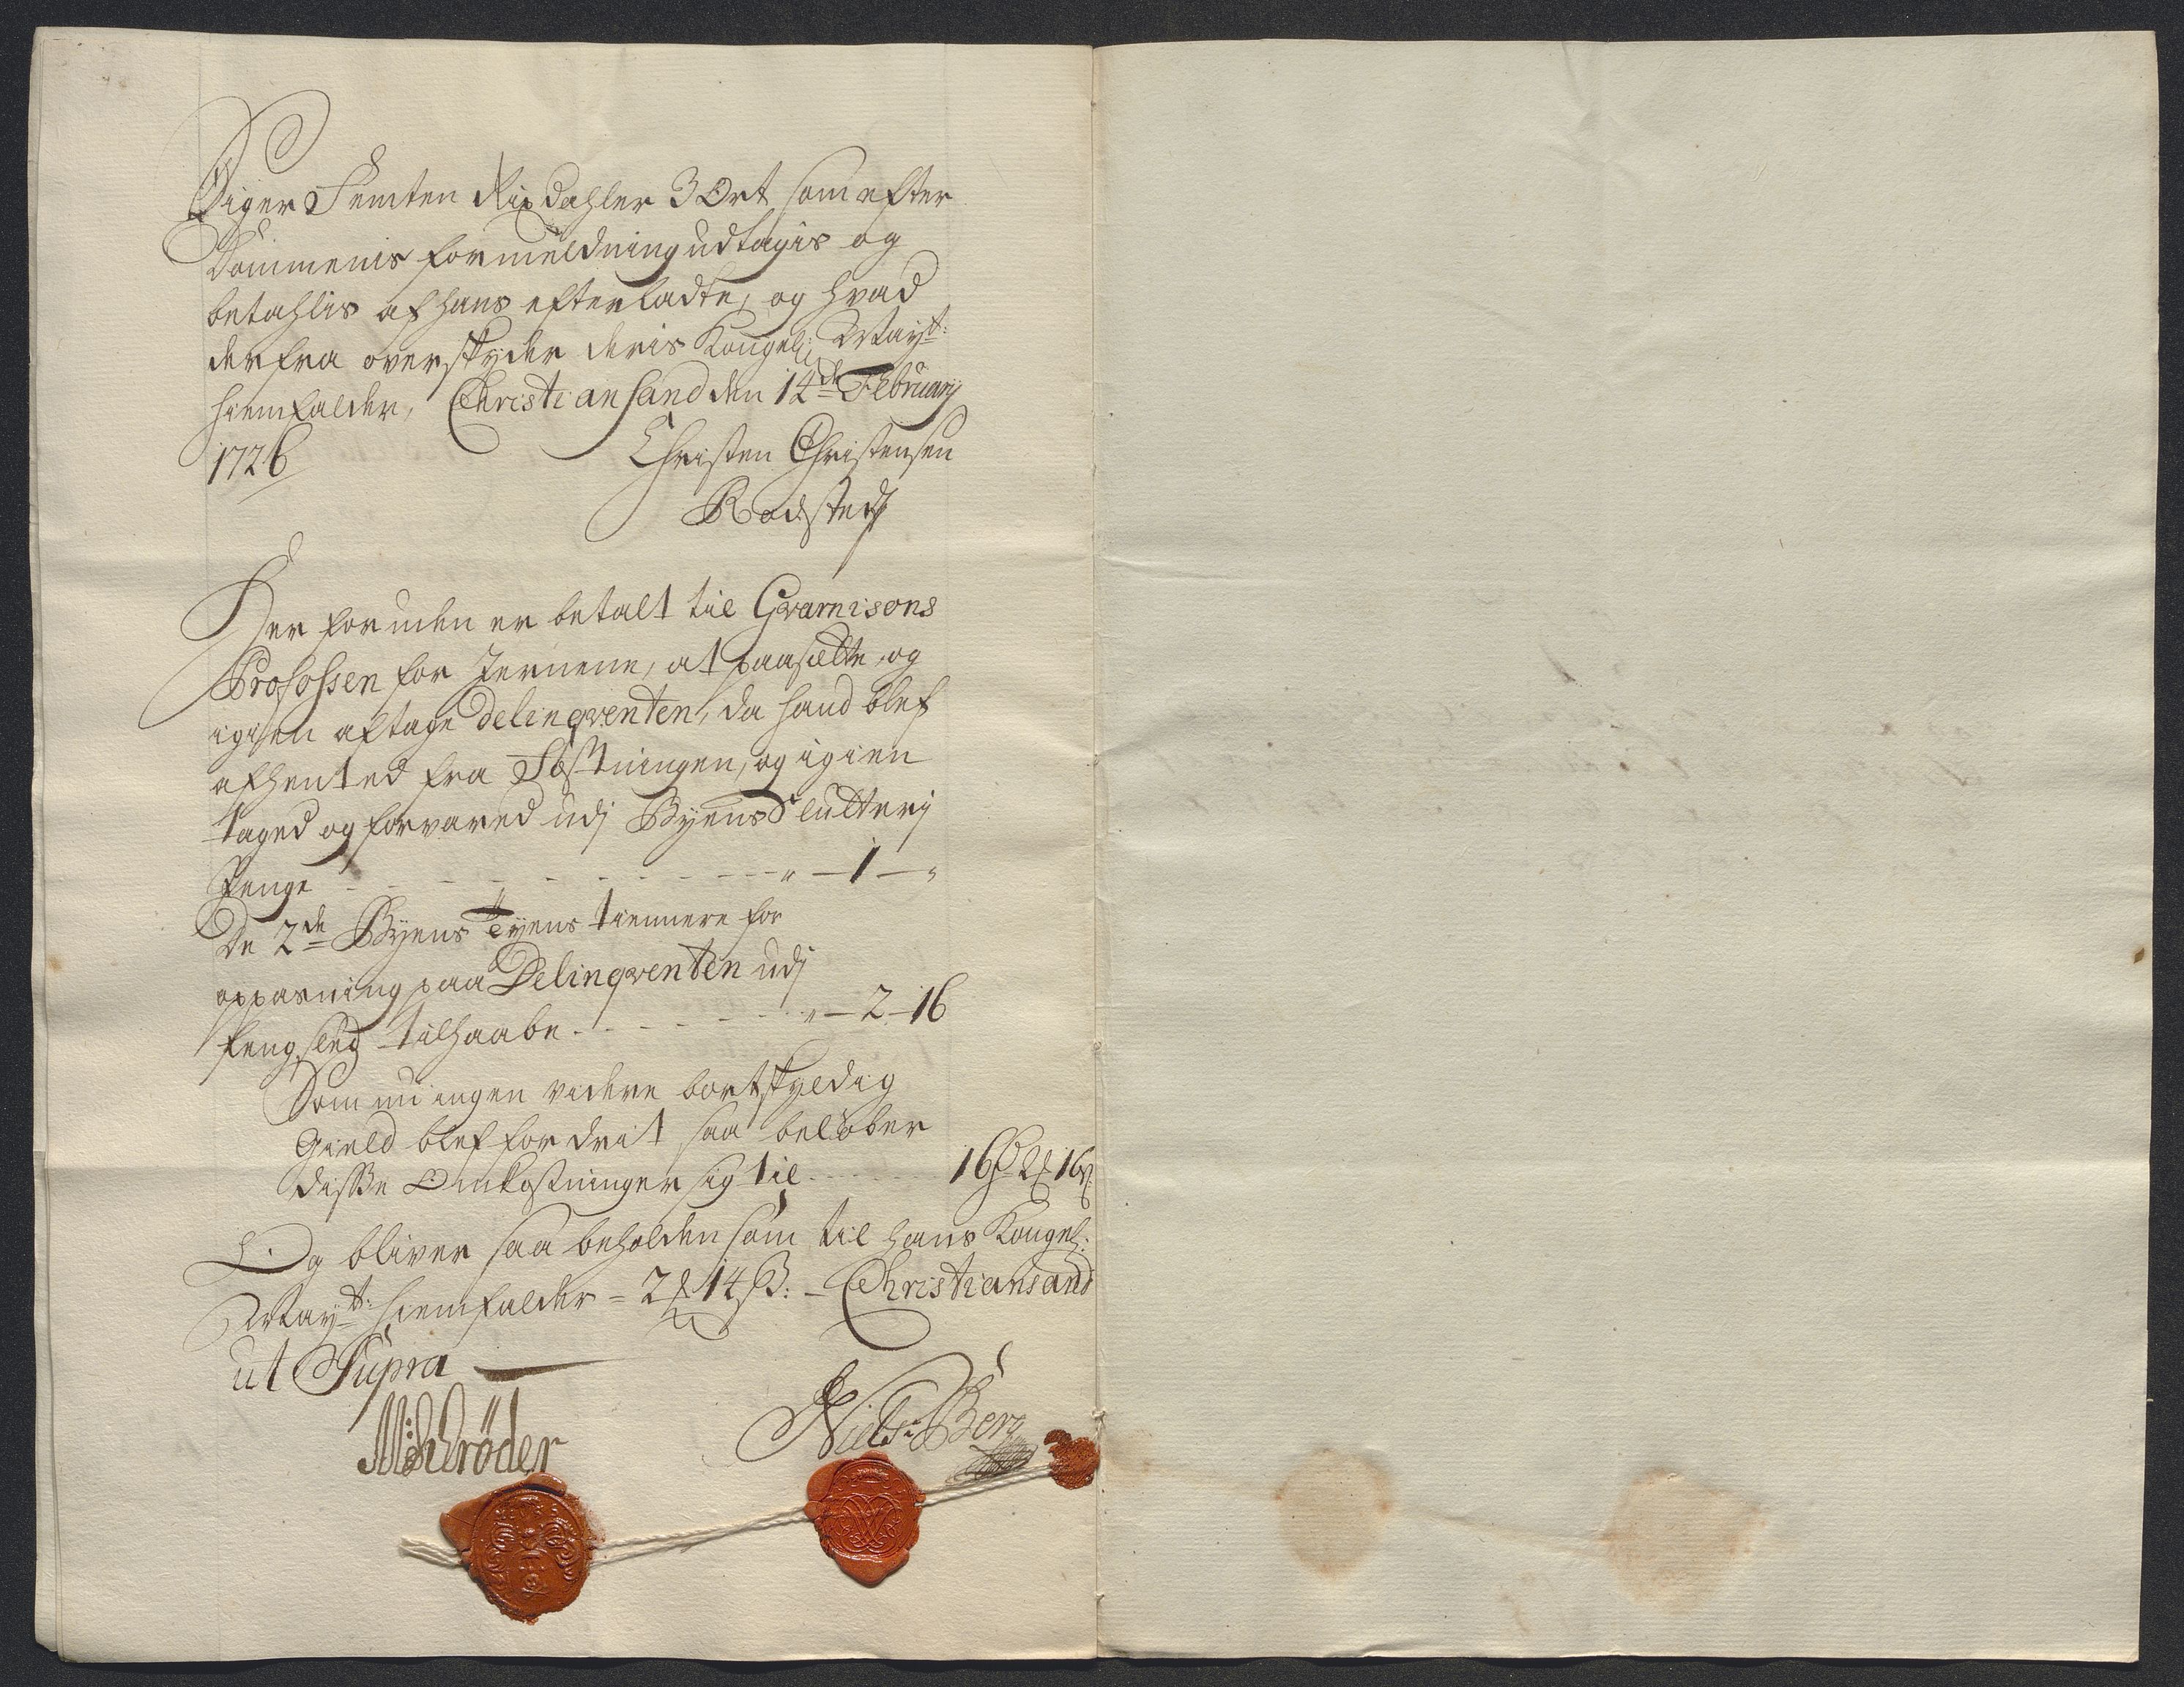 Siger Femten Rix dahler 3 Ort som efter
Dommenis formeldning udtagis og
betahlis af hans efterladte, og hvad
derfra overskyder deris Kongel: Mayt:
hiemfalder, Christiansand den 14de February
1726
Christen Christensen
Rodsted
Der foruden er betalt til Gvarnisons
Profossen for Jernene, at paasætte, og
igien aftage Delinqventen, da hand blef
afhented fra Festningen, og igien
taged og forvared udj Byens Slutterj
Penge - - - - - - - - - " - 1 - "
De 2de Byens tiennere for
oppasning paa Delinqventen udj
fengslet tilhaabe - - - - - " - 2 - 16
Som nu ingen videre bortskyldig
Gield blef fordrit saa beløber
disse Omkostninger sig til - - - 16 2 16
Og bliver saa beholden som til hans Kongel:
Mayt: hiemfalder = 2 14 ß: - Christiansand
ut Supra
M: Schrøder
Niels: Berg